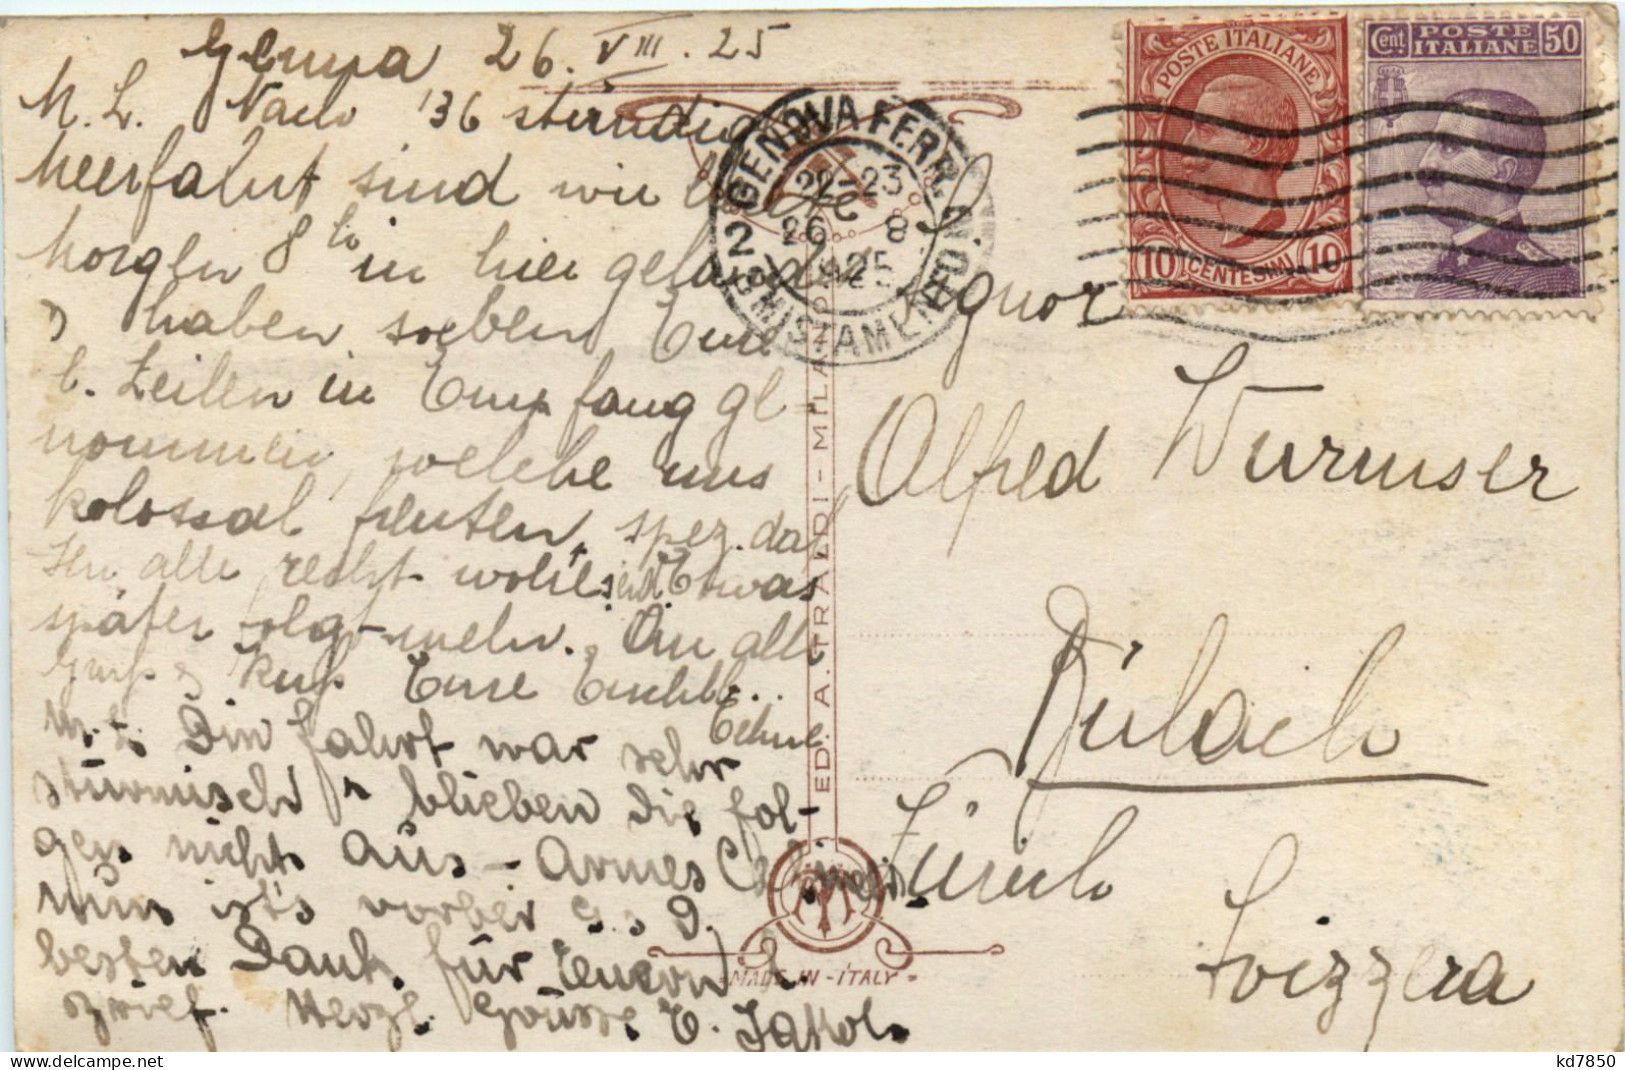 Genua 26. VIII. 25
M. L. Nach 136 stündig
Meerfahrt sind wir heute
Morgen 8 h in hier gelandet
& haben soeben Eure
l. Zeilen in Empfang ge-
nommen, welche uns
kolossal freuten, spez. daß
Ihr alle recht wohl seid. Etwas
später folgt mehr. An alle
Gruß & Kuß Eure
M. L. Die Fahrt war sehr
stürmisch & blieben die Fol-
gen nicht aus - Armes
nun ist's vorbei G. s. D.
besten Dank für Eueren l.
Brief. Herzl. Grüsse E. Jakob.
POSTE ITALIANE
10 CENTESIMI 10
Cent. POSTE ITALIANE 50
GENOVA FERR.
22-23
26 8
1925
2
SMISTAMENTO
Signor
Alfred Wurmser
Bülach
Zürich
Svizzera
ED. A. TRALDI - MILANO
MADE IN ITALY
kd7850